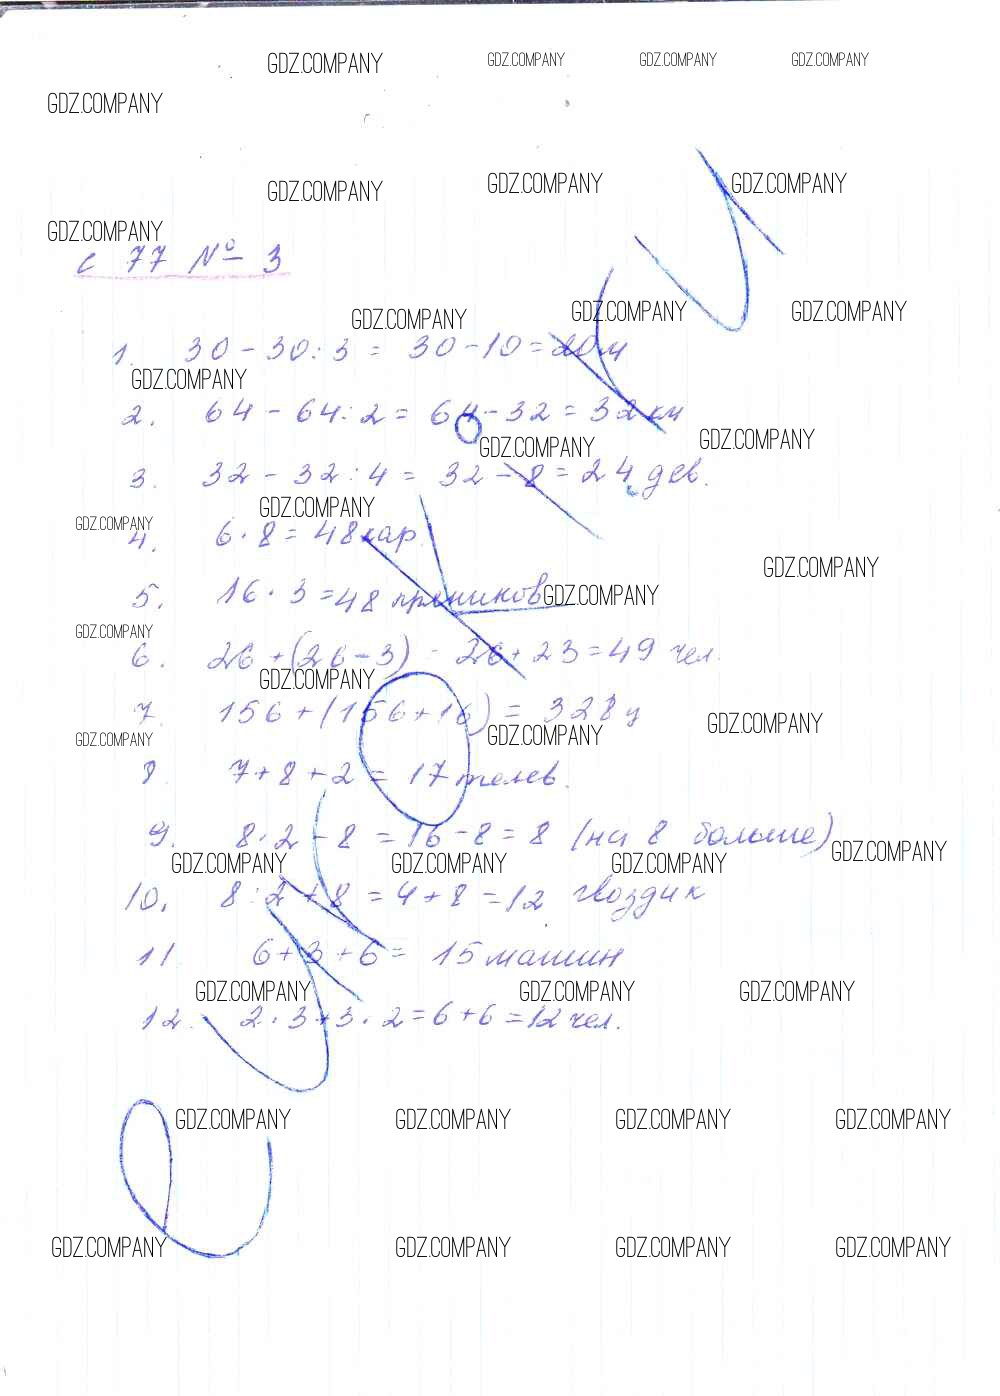 GDZ.COMPANY GDZ.COMPANY GDZ.COMPANY GDZ.COMPANY
GDZ.COMPANY
GDZ.COMPANY GDZ.COMPANY GDZ.COMPANY
GDZ.COMPANY
с 77 № 3
GDZ.COMPANY GDZ.COMPANY GDZ.COMPANY
1. 30 - 30 : 3 = 30 - 10 = 20 м
GDZ.COMPANY
2. 64 - 64 : 2 = 64 - 32 = 32 км
GDZ.COMPANY GDZ.COMPANY
3. 32 - 32 : 4 = 32 - 8 = 24 дев.
GDZ.COMPANY
GDZ.COMPANY
4. 6 · 8 = 48 кар.
GDZ.COMPANY
5. 16 · 3 = 48 пряников
GDZ.COMPANY
GDZ.COMPANY
6. 26 + (26 - 3) = 26 + 23 = 49 чел.
GDZ.COMPANY
7. 156 + (156 + 16) = 328 ц
GDZ.COMPANY GDZ.COMPANY GDZ.COMPANY
8. 7 + 8 + 2 = 17 телев.
9. 8 · 2 - 8 = 16 - 8 = 8 (на 8 больше)
GDZ.COMPANY GDZ.COMPANY GDZ.COMPANY GDZ.COMPANY
10. 8 : 2 + 8 = 4 + 8 = 12 гвоздик
11. 6 + 3 + 6 = 15 машин
GDZ.COMPANY GDZ.COMPANY GDZ.COMPANY
12. 2 · 3 + 3 · 2 = 6 + 6 = 12 чел.
GDZ.COMPANY GDZ.COMPANY GDZ.COMPANY GDZ.COMPANY
GDZ.COMPANY GDZ.COMPANY GDZ.COMPANY GDZ.COMPANY